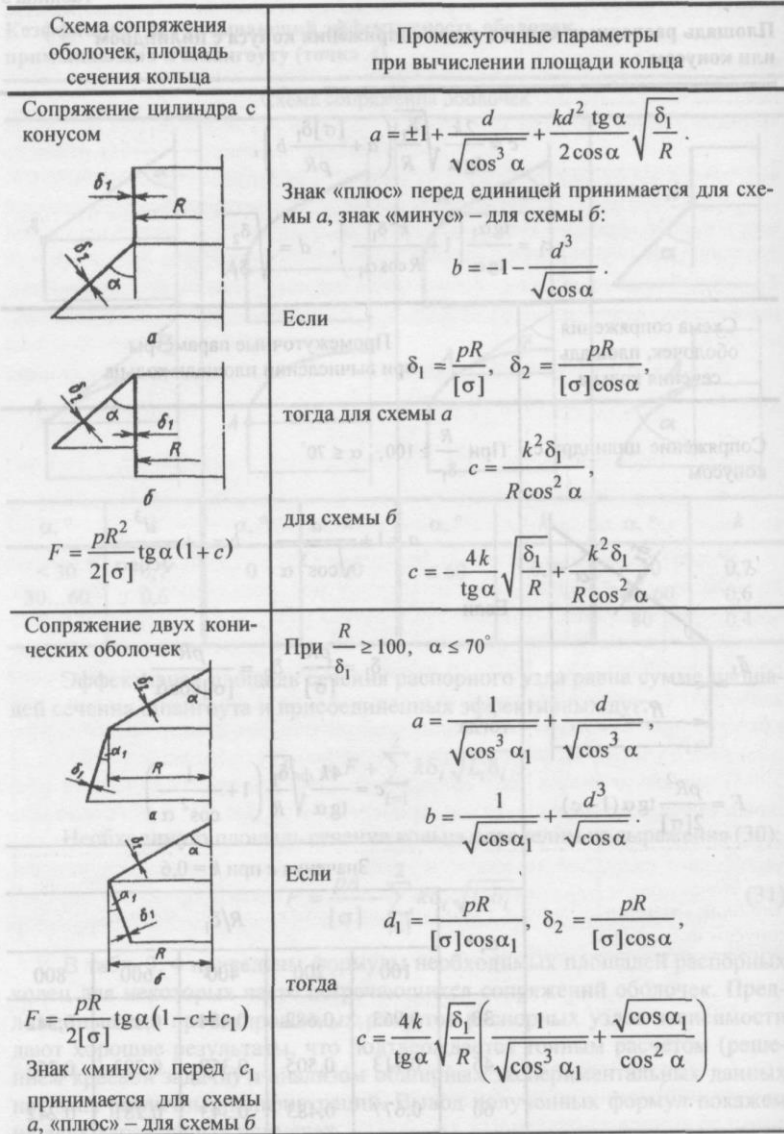 Схема сопряжения
оболочек, площадь
сечения кольца
Промежуточные параметры
при вычислении площади кольца
Сопряжение цилиндра с
конусом
δ₁
R
δ₂
α
а
δ₂
α
δ₁
R
б
F = pR²/(2[σ]) tg α (1 + c)
a = ±1 + d/√(cos³ α) + (kd² tg α)/(2 cos α) √(δ₁/R).
Знак «плюс» перед единицей принимается для схе-
мы а, знак «минус» – для схемы б:
b = –1 – d³/√(cos α).
Если
δ₁ = pR/[σ], δ₂ = pR/([σ] cos α),
тогда для схемы а
c = k²δ₁/(R cos² α),
для схемы б
c = – 4k/(tg α) √(δ₁/R) + k²δ₁/(R cos² α)
Сопряжение двух кони-
ческих оболочек
α
α₁
δ₁
R
а
α
α₁
δ₁
R
б
F = pR/(2[σ]) tg α (1 – c ± c₁)
Знак «минус» перед c₁
принимается для схемы
а, «плюс» – для схемы б
При R/δ₁ ≥ 100, α ≤ 70°
a = 1/√(cos³ α₁) + d/√(cos³ α),
b = 1/√(cos α₁) + d³/√(cos α).
Если
d₁ = pR/([σ] cos α₁), δ₂ = pR/([σ] cos α),
тогда
c = 4k/(tg α) √(δ₁/R) (1/√(cos³ α₁) + √(cos α₁)/(cos² α))